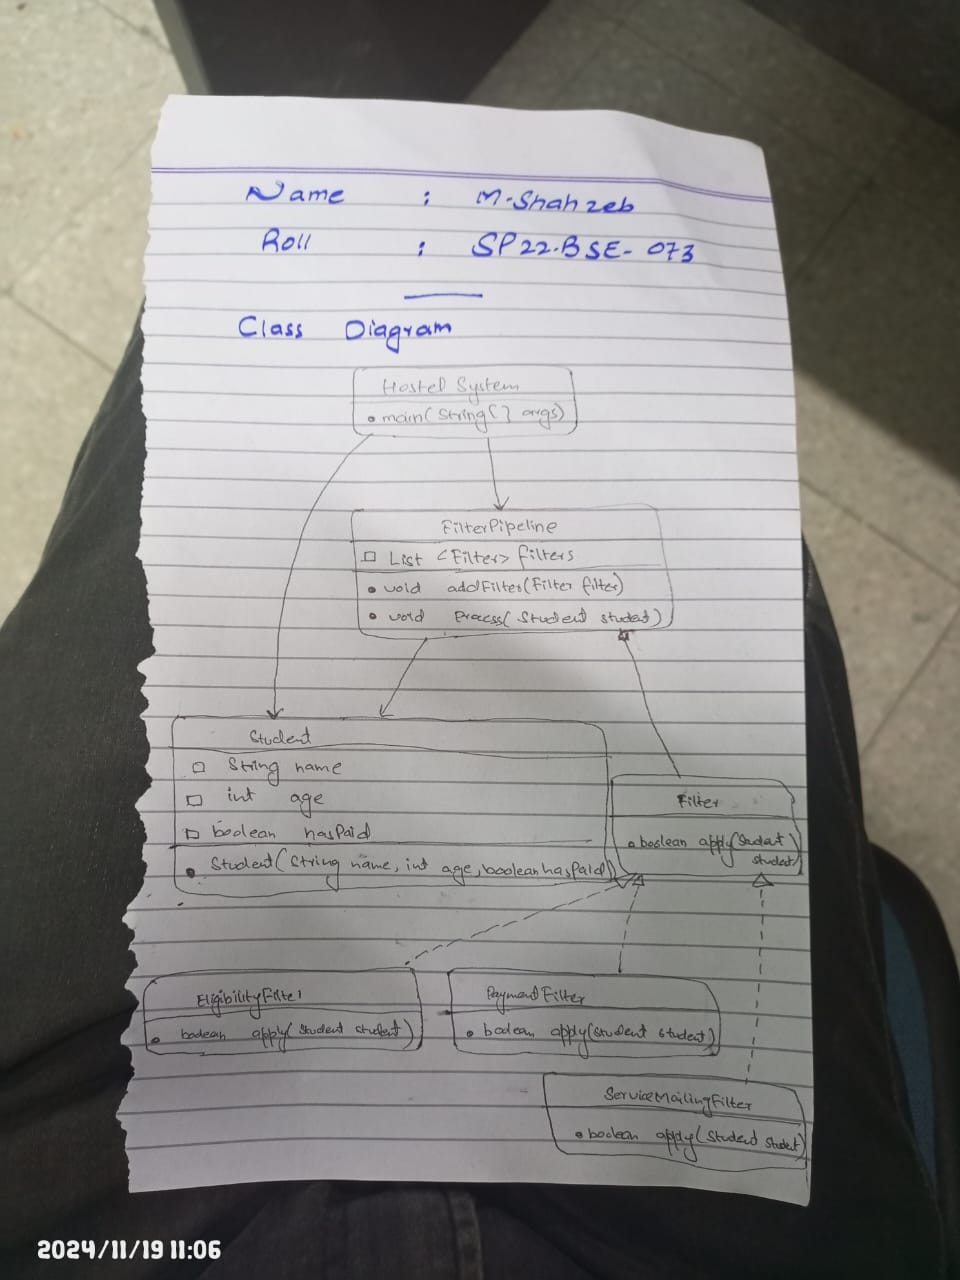 Name : M-Shahzeb
Roll : SP22-BSE-073
Class Diagram
Hostel System
• main(String[] args)
FilterPipeline
□ List <Filter> filters
• void addFilter(Filter filter)
• void Process(Student student)
Student
□ String name
□ int age
□ boolean hasPaid
• Student(String name, int age, boolean hasPaid)
Filter
• boolean apply(Student
student)
EligibilityFilter
• boolean apply(Student student)
PaymentFilter
• boolean apply(Student student)
ServiceMailingFilter
• boolean apply(Student student)
2024/11/19 11:06